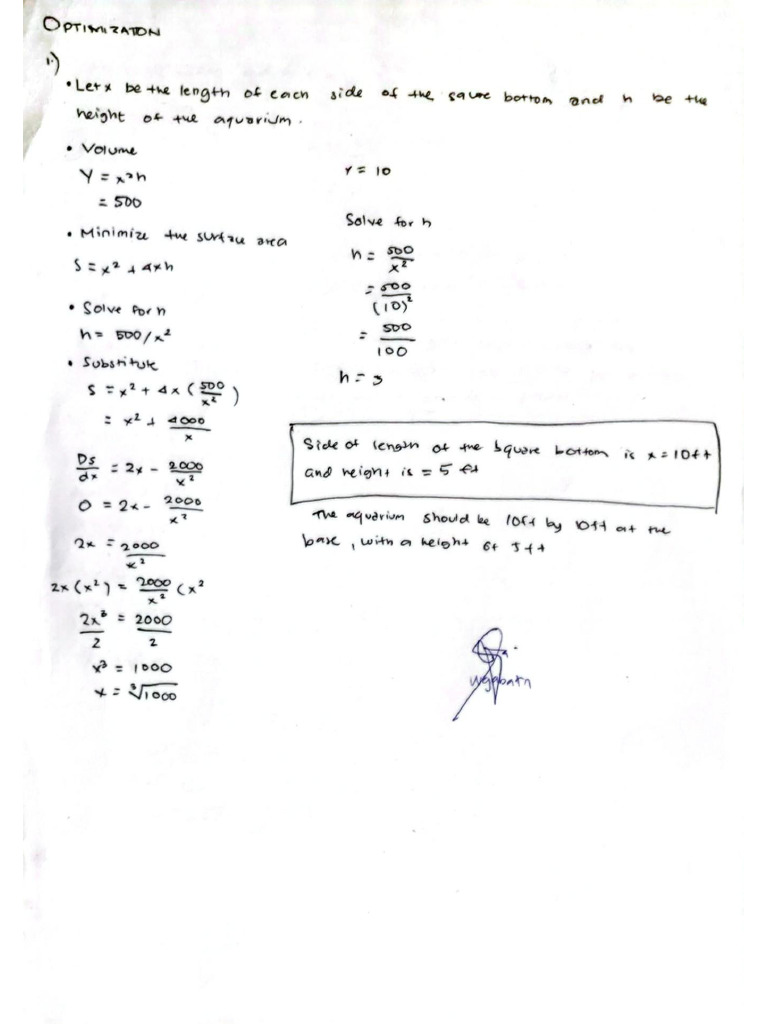 OPTIMIZATON
1.)
• Let x be the length of each side of the squre bottom and h be the
height of the aquarium.
• Volume
Y = x²h
= 500
• Minimize the surface area
S = x² + 4xh
• Solve for h
h = 500/x²
• Substitute
S = x² + 4x (500/x²)
= x² + 4000/x
Ds/dx = 2x - 2000/x²
0 = 2x - 2000/x²
2x = 2000/x²
2x (x²) = 2000/x² (x²
2x³/2 = 2000/2
x³ = 1000
x = ³√1000
x = 10
Solve for h
h = 500/x²
= 500/(10)²
= 500/100
h = 3
Side of length of the square bottom is x = 10ft
and height is = 5 ft
The aquarium should be 10ft by 10ft at the
base, with a height of 5ft